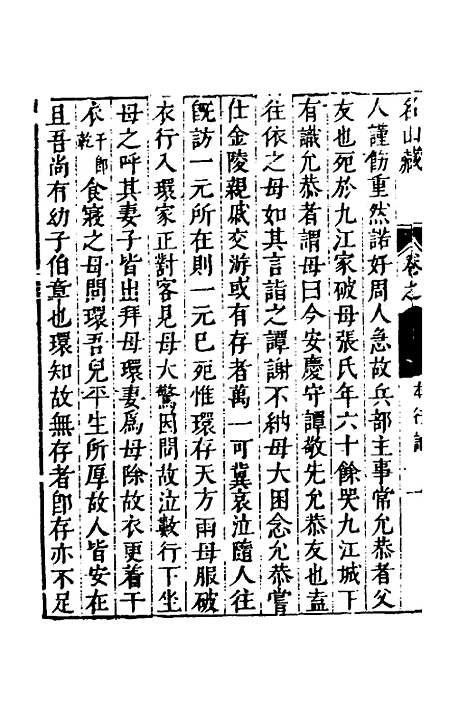 名山藏 卷之 本行記 一
人謹飭重然諾好周人急故兵部主事常允恭者父
友也死於九江家破母張氏年六十餘哭九江城下
有識允恭者謂母曰今安慶守譚敬先允恭友也盍
往依之母如其言詣之譚謝不納母大困念允恭嘗
仕金陵親戚交游或有存者萬一可冀哀泣隨人往
旣訪一元所在則一元已死惟環存天方雨母服破
衣行入環家正對客見母大驚因問故泣數行下坐
母之呼其妻子皆出拜母環妻爲母除故衣更着干
衣干卽乾食寝之母問環吾兒平生所厚故人皆安在
且吾尚有幼子伯章也環知故無存者卽存亦不足